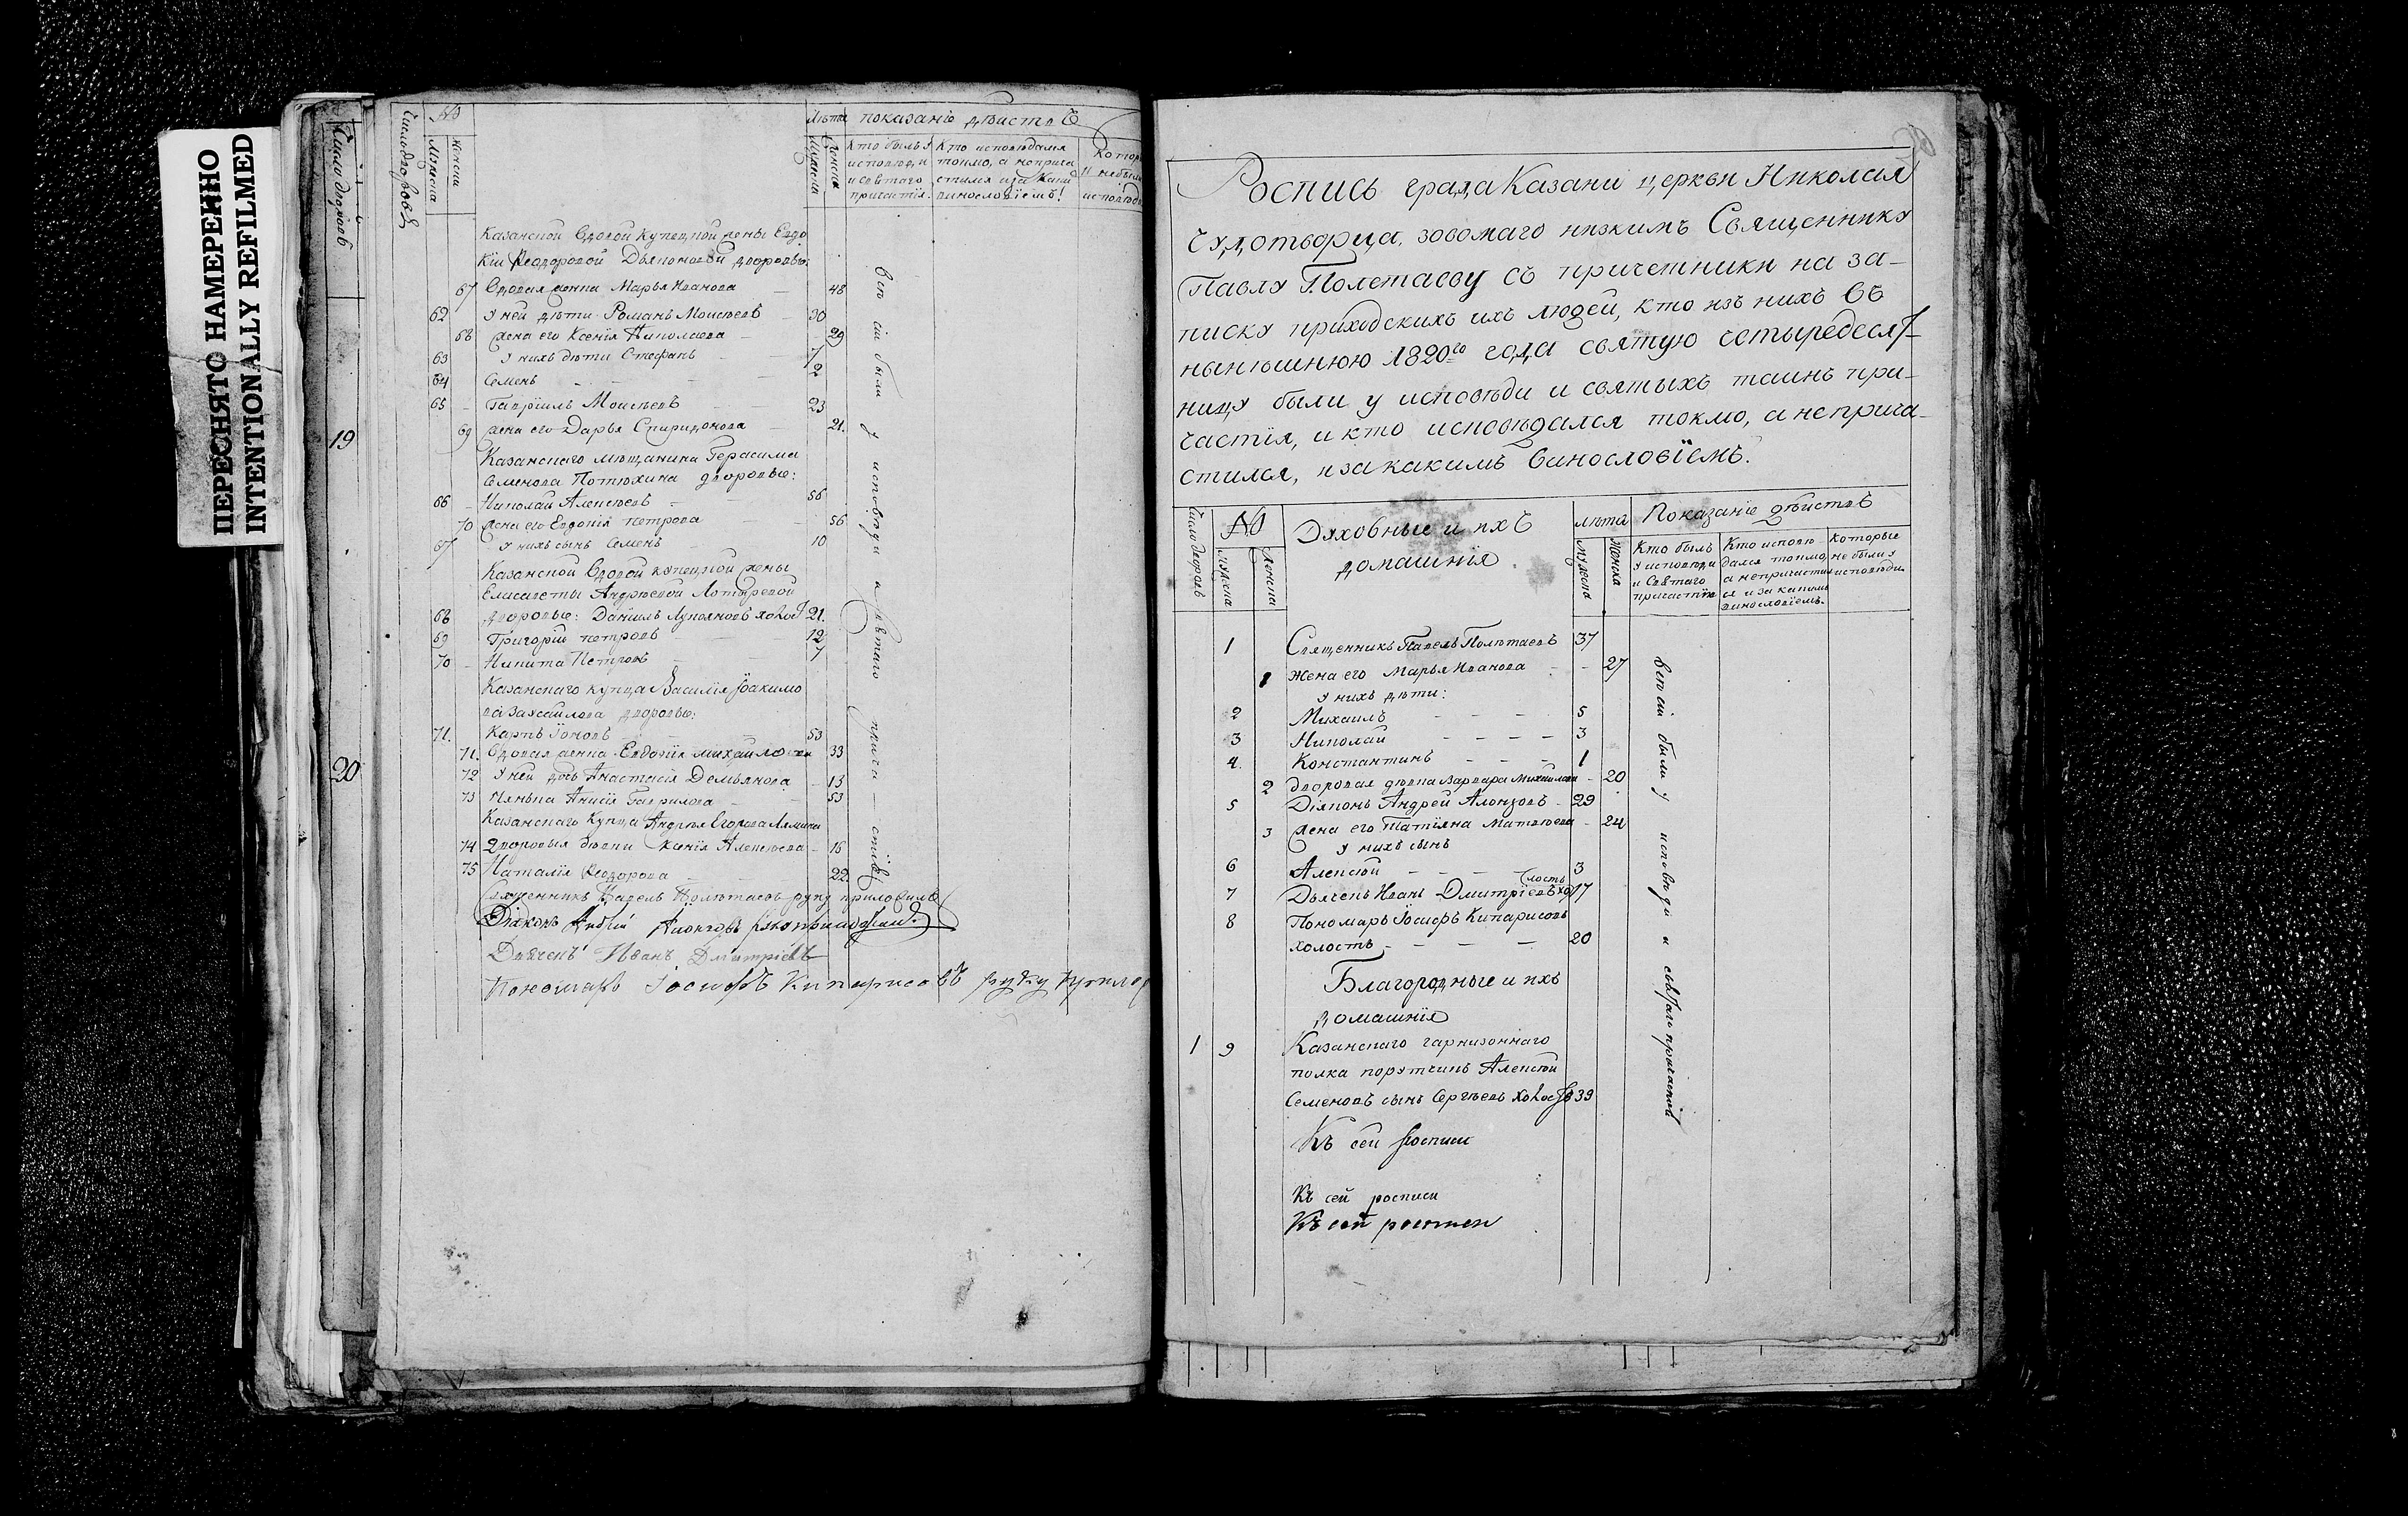 ПЕРЕСНЯТО НАМЕРЕННО
INTENTIONALLY REFILMED
Число дворовъ
19
20
Число дворовъ
№
Мужеска
Женска
Лѣта
Мужеска
Женска
показаніе дѣйствъ
Кто былъ у исповѣд. и и святого причастія.
Кто исповѣдался токмо, а неприча стился и за каки винословіемъ!
Котор и небыли исповѣд
Казанской вдовой купецкой жены Евдо
кіи Ѳеодоровой Дьяконовой дворовые:
67 Вдовая женка Марья Иванова 48
62 У ней дѣти Романъ Моисѣевъ 30
68 жена его Ксенія Николаева 29
63 У нихъ дѣти Стефанъ 7
64 Семенъ 2
65 Гавріилъ Моисѣевъ 23
69 жена его Дарья Спиридонова 21.
Казанскаго мѣщанина Герасима
Семенова Потехина дворовые:
66 Николай Алексѣевъ 56
70 жена его Евдокія петрова 56
67 У нихъ сынъ Семенъ 10
Казанской вдовой купецкой жены
Елисаветы Андрѣевой
68 дворовые: Даніилъ Лукьяновъ холост 21.
69 Григорій петровъ 12
70 Никита Петровъ 7
Казанскаго купца Василія Іоакимо
ва дворовые:
71. Карпъ Іоновъ 53
71. Вдовая женка Евдокія михайлова 33
72 У ней дочь Анастасія Демьянова 13
73 Нянька Анисія Гаврилова 53
Казанскаго Купца Андрѣя Егорова
74 Дворовыя дѣвки Ксенія Алексѣева 16
75 Наталія Ѳеодорова 22.
всѣ сіи были у исповѣди и святаго прича стія
Священникъ Павелъ Полѣтаевъ руку приложилъ
Діаконъ Андрей
Дьячекъ Иванъ Дмитріевъ
Пономарь Іосифъ Кипарисовъ руку прилож
Роспись града Казани церкви Николая
Чудотворца, зовомаго низкимъ Священнику
Павлу Полетаеву съ причетники на за-
писку приходскихъ ихъ людей, кто изъ нихъ въ
нынѣшнюю 1820го года святую четыредеся-
ницу были у исповѣди и святыхъ таинъ при-
частія, и кто исповѣдался токмо, а неприча-
стился, и за какимъ винословіемъ.
Число дворовъ
№
Мужеска
Женска
Духовные и ихъ
домашнія
лѣта
Мужеска
Женска
Показаніе дѣйствъ
Кто былъ у исповѣди и Святаго причастія
Кто исповѣ- дался токмо, а непричасти ся и за какимъ винословіемъ.
Которые не были у исповѣди
1 Священникъ Павелъ Полѣтаевъ 37
1 Жена его Марья Иванова 27
У нихъ дѣти:
2 Михаилъ 5
3 Николай 3
4. Константинъ 1
2 дворовая дѣвка Варвара Михайлова 20
5 Діяконъ Андрей 29
3 жена его Татіяна Матвѣева 24
У нихъ сынъ
6 Алексѣй 3
7 Дьячекъ Иванъ Дмитріевъ холостъ 17
8 Пономарь Іосифъ Кипарисовъ
холостъ 20
Благородные и ихъ
домашнія
1 9 Казанскаго гарнизоннаго
полка порутчикъ Алексѣй
Семеновъ сынъ Сергѣевъ холостъ 39
всѣ сіи были у исповѣди и святаго причастія
Къ сей росписи
Къ сей росписи
Къ сей росписи